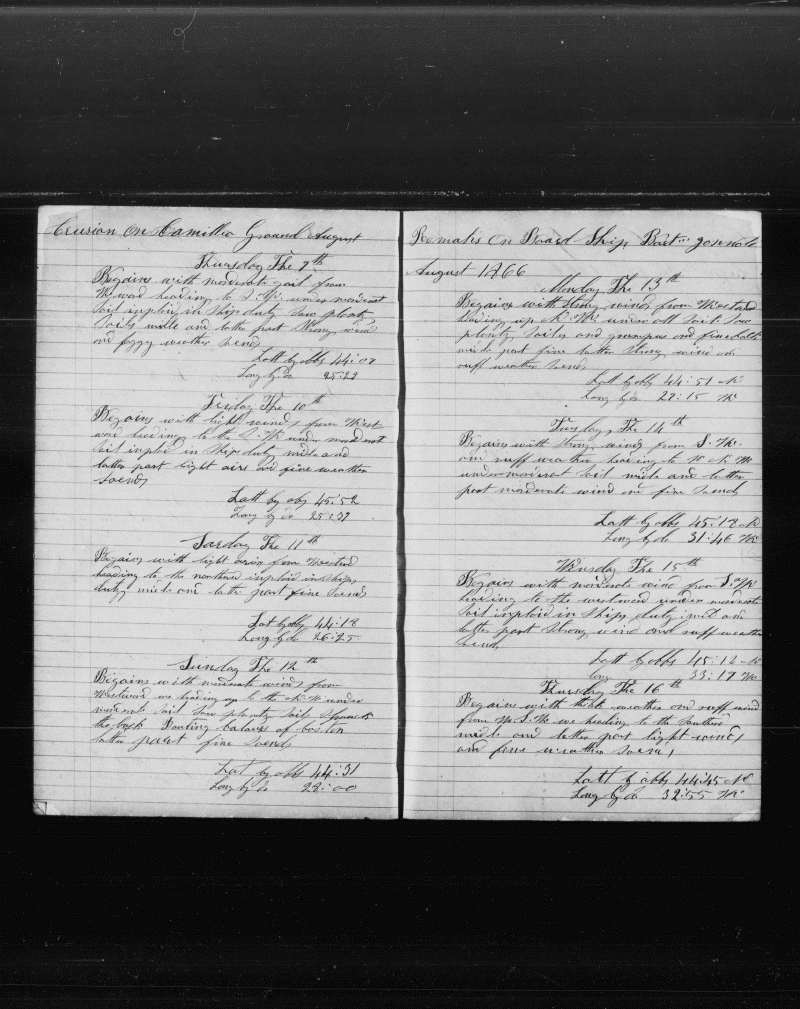 Crusion On Camilla Ground August
Thursday The 9th
Begains with moderate gail from
W ward heading to S. W. under moderat
Sail inploid in Ship duty Saw plenty
Sails midle and latter part Strong wind
and foggy weather So ends
Latt by obbs 44:02
Long by do 25:29
Friday The 10th
Begains with light winds from West
ward heading to the under moderat
Sail inploid in Ships duty midle and
latter part light airs and fine weather
so ends
Latt by obs 45:52
Long by do 25:37
Sarday The 11th
Begains with light airs from Westerd
heading to the northerd inploid in Ships
duty midle and latter part fine Soends
Lat by obs 44:18
Long by do 26:25
Sunday The 12th
Begains with moderate winds from
Westward we heading up to the N. W under
moderate Sail Saw plenty Sail
the bark of boston
latter part fine Soends
Lat by obbs 44:31
Long by do 28:00
Remarks On Board Ship
August 1866
Monday The 13th
Begains with Strong winds from Westard
heading up N. W. under all Sail. Saw
plenty Sailes and grampus and fine
midle part fine latter Strong wind and
ruff weather Soends
Latt by obbs 44:51 N
Long by do 29:15 W
Tusday The 14th
Begains with Strong winds from S. W.
and ruff weather heading to N. N. W
under moderat Sail midle and latter
part moderate wind and fine Soends
Latt by obbs 45:18 N
Long by do 31:46 W
Wensday The 15th
Begains with moderate wind from
heading to the westward under moderate
Sail inploid in Ships duty mid and
latter part Strong wind and ruff weather
Sends
Latt by obbs 45:12 N
Long 33:17 W
Thursday The 16th
Begains with thick weather and ruff wind
from W. S. W we heading to the Southerd
midle and latter part light winds
and fine weather Soends
Latt by obbs 44:45 N
Long by do 32:55 W